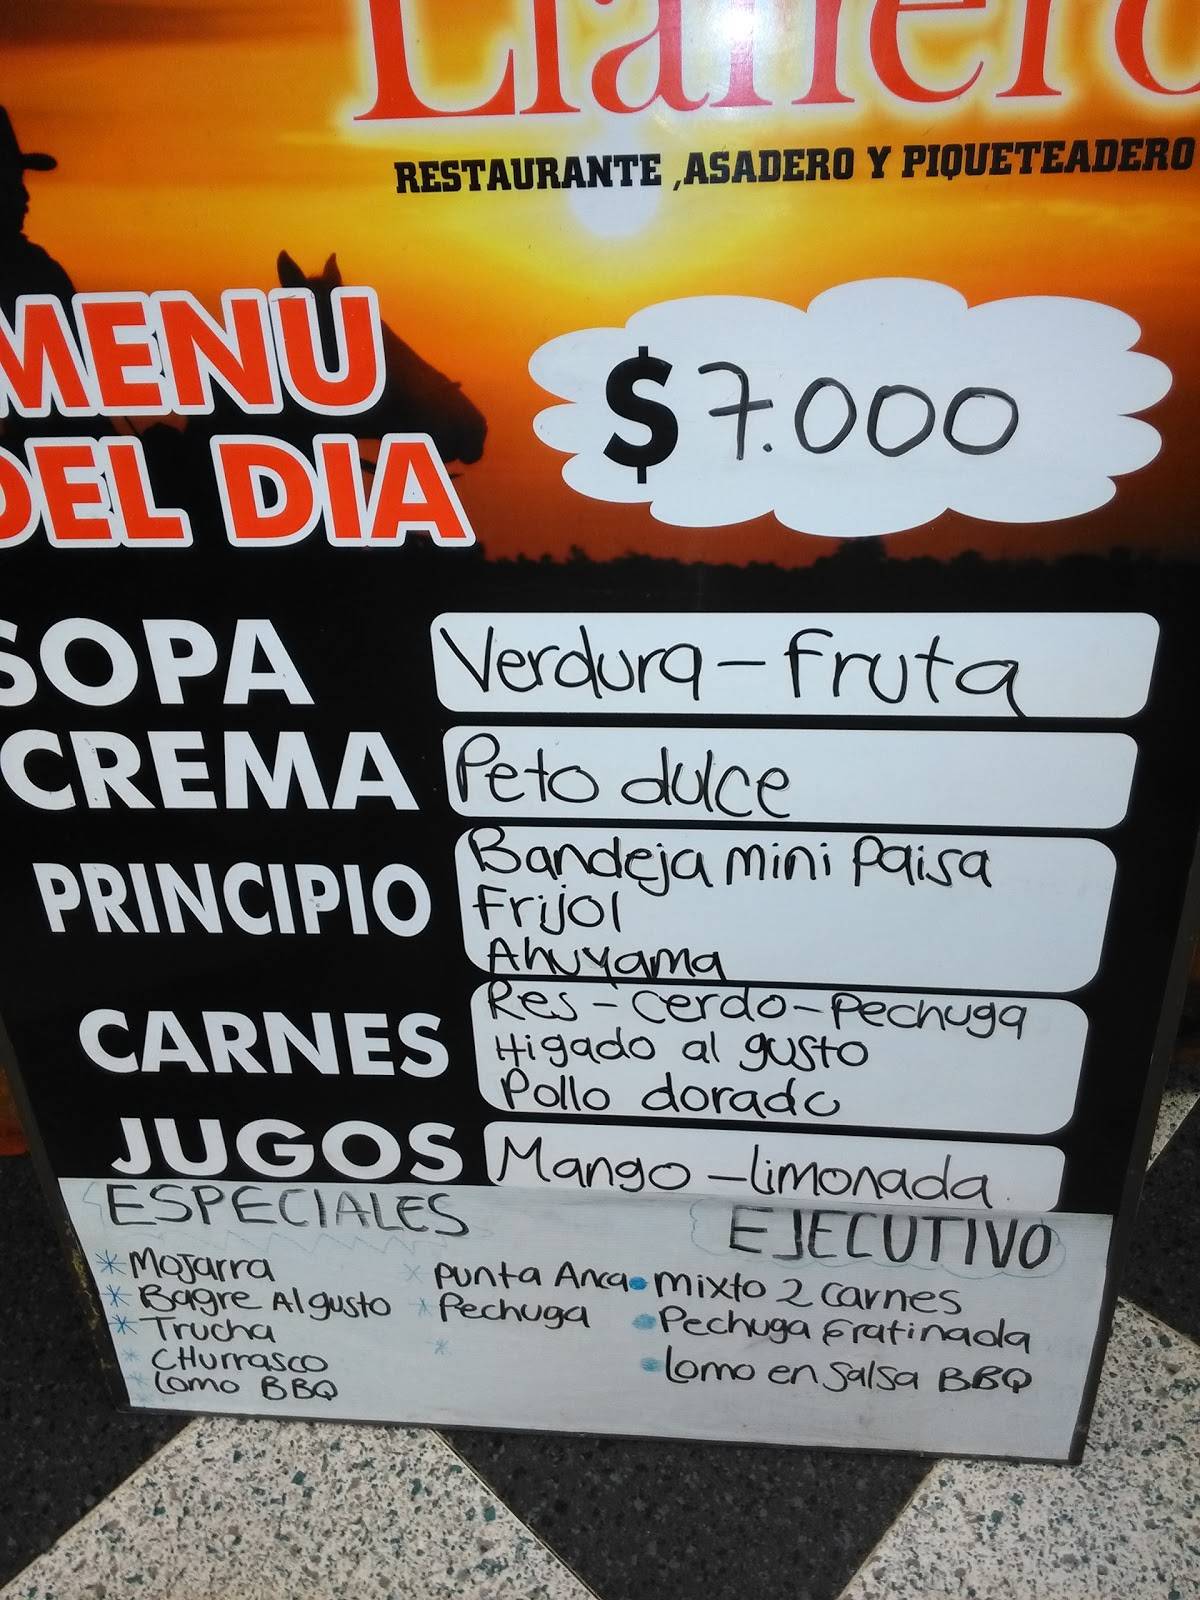 Llanero
RESTAURANTE ,ASADERO Y PIQUETEADERO
MENU
DEL DIA
$ 7.000
SOPA Verdura - Fruta
CREMA Peto dulce
PRINCIPIO Bandeja mini Paisa
Frijol
Ahuyama
CARNES Res - Cerdo - Pechuga
Higado al gusto
Pollo dorado
JUGOS Mango - Limonada
ESPECIALES
* Mojarra
* Bagre Al gusto
* Trucha
* CHurrasco
* Lomo BBQ
* Punta Anca
* Pechuga
*
EJECUTIVO
• Mixto 2 carnes
• Pechuga Gratinada
• Lomo en Salsa BBQ